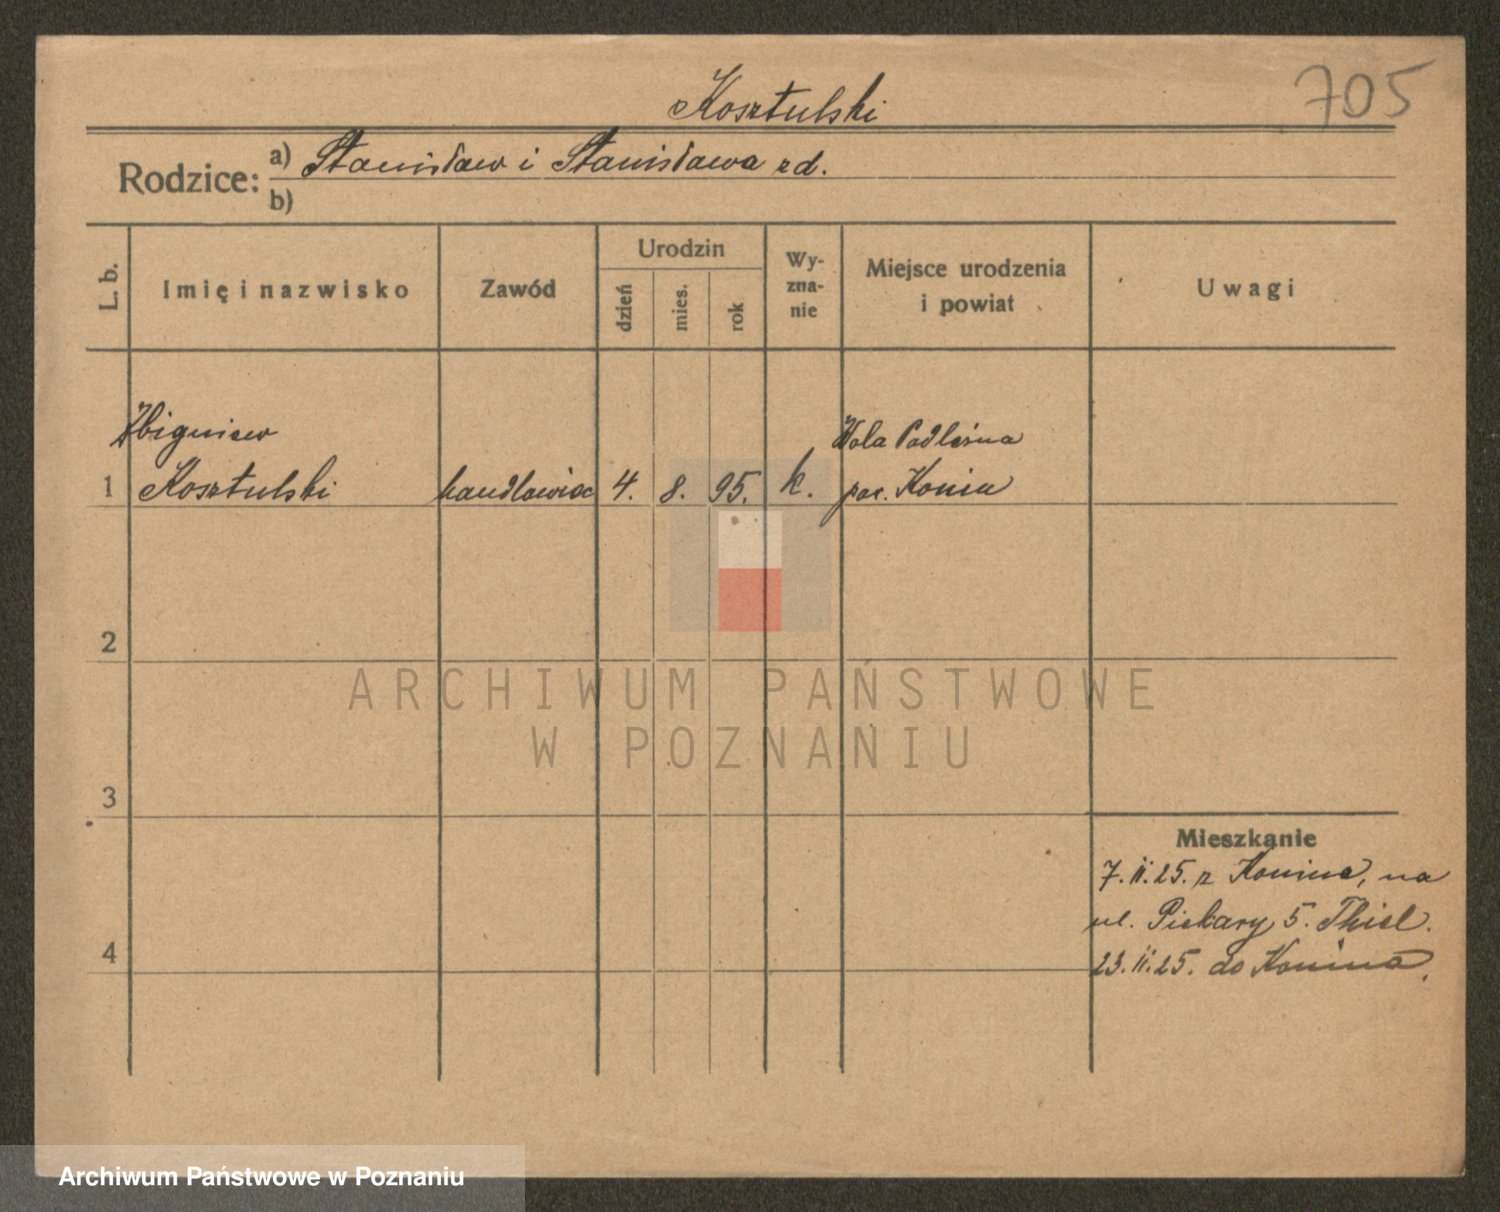 705
Kosztulski
Rodzice: a) Stanisław i Stanisława zd.
b)
L. b.
Imię i nazwisko
Zawód
Urodzin
dzień
mies.
rok
Wy-
zna-
nie
Miejsce urodzenia
i powiat
Uwagi
Zbigniew
Wola Podleśna
1 Kosztulski handlowiec 4. 8. 95. k. pow. Konin
2
ARCHIWUM PAŃSTWOWE
W POZNANIU
3
Mieszkanie
7. II. 25. z Konina, na
ul. Piekary 5. Thiel.
4
23. II. 25. do Konina.
Archiwum Państwowe w Poznaniu